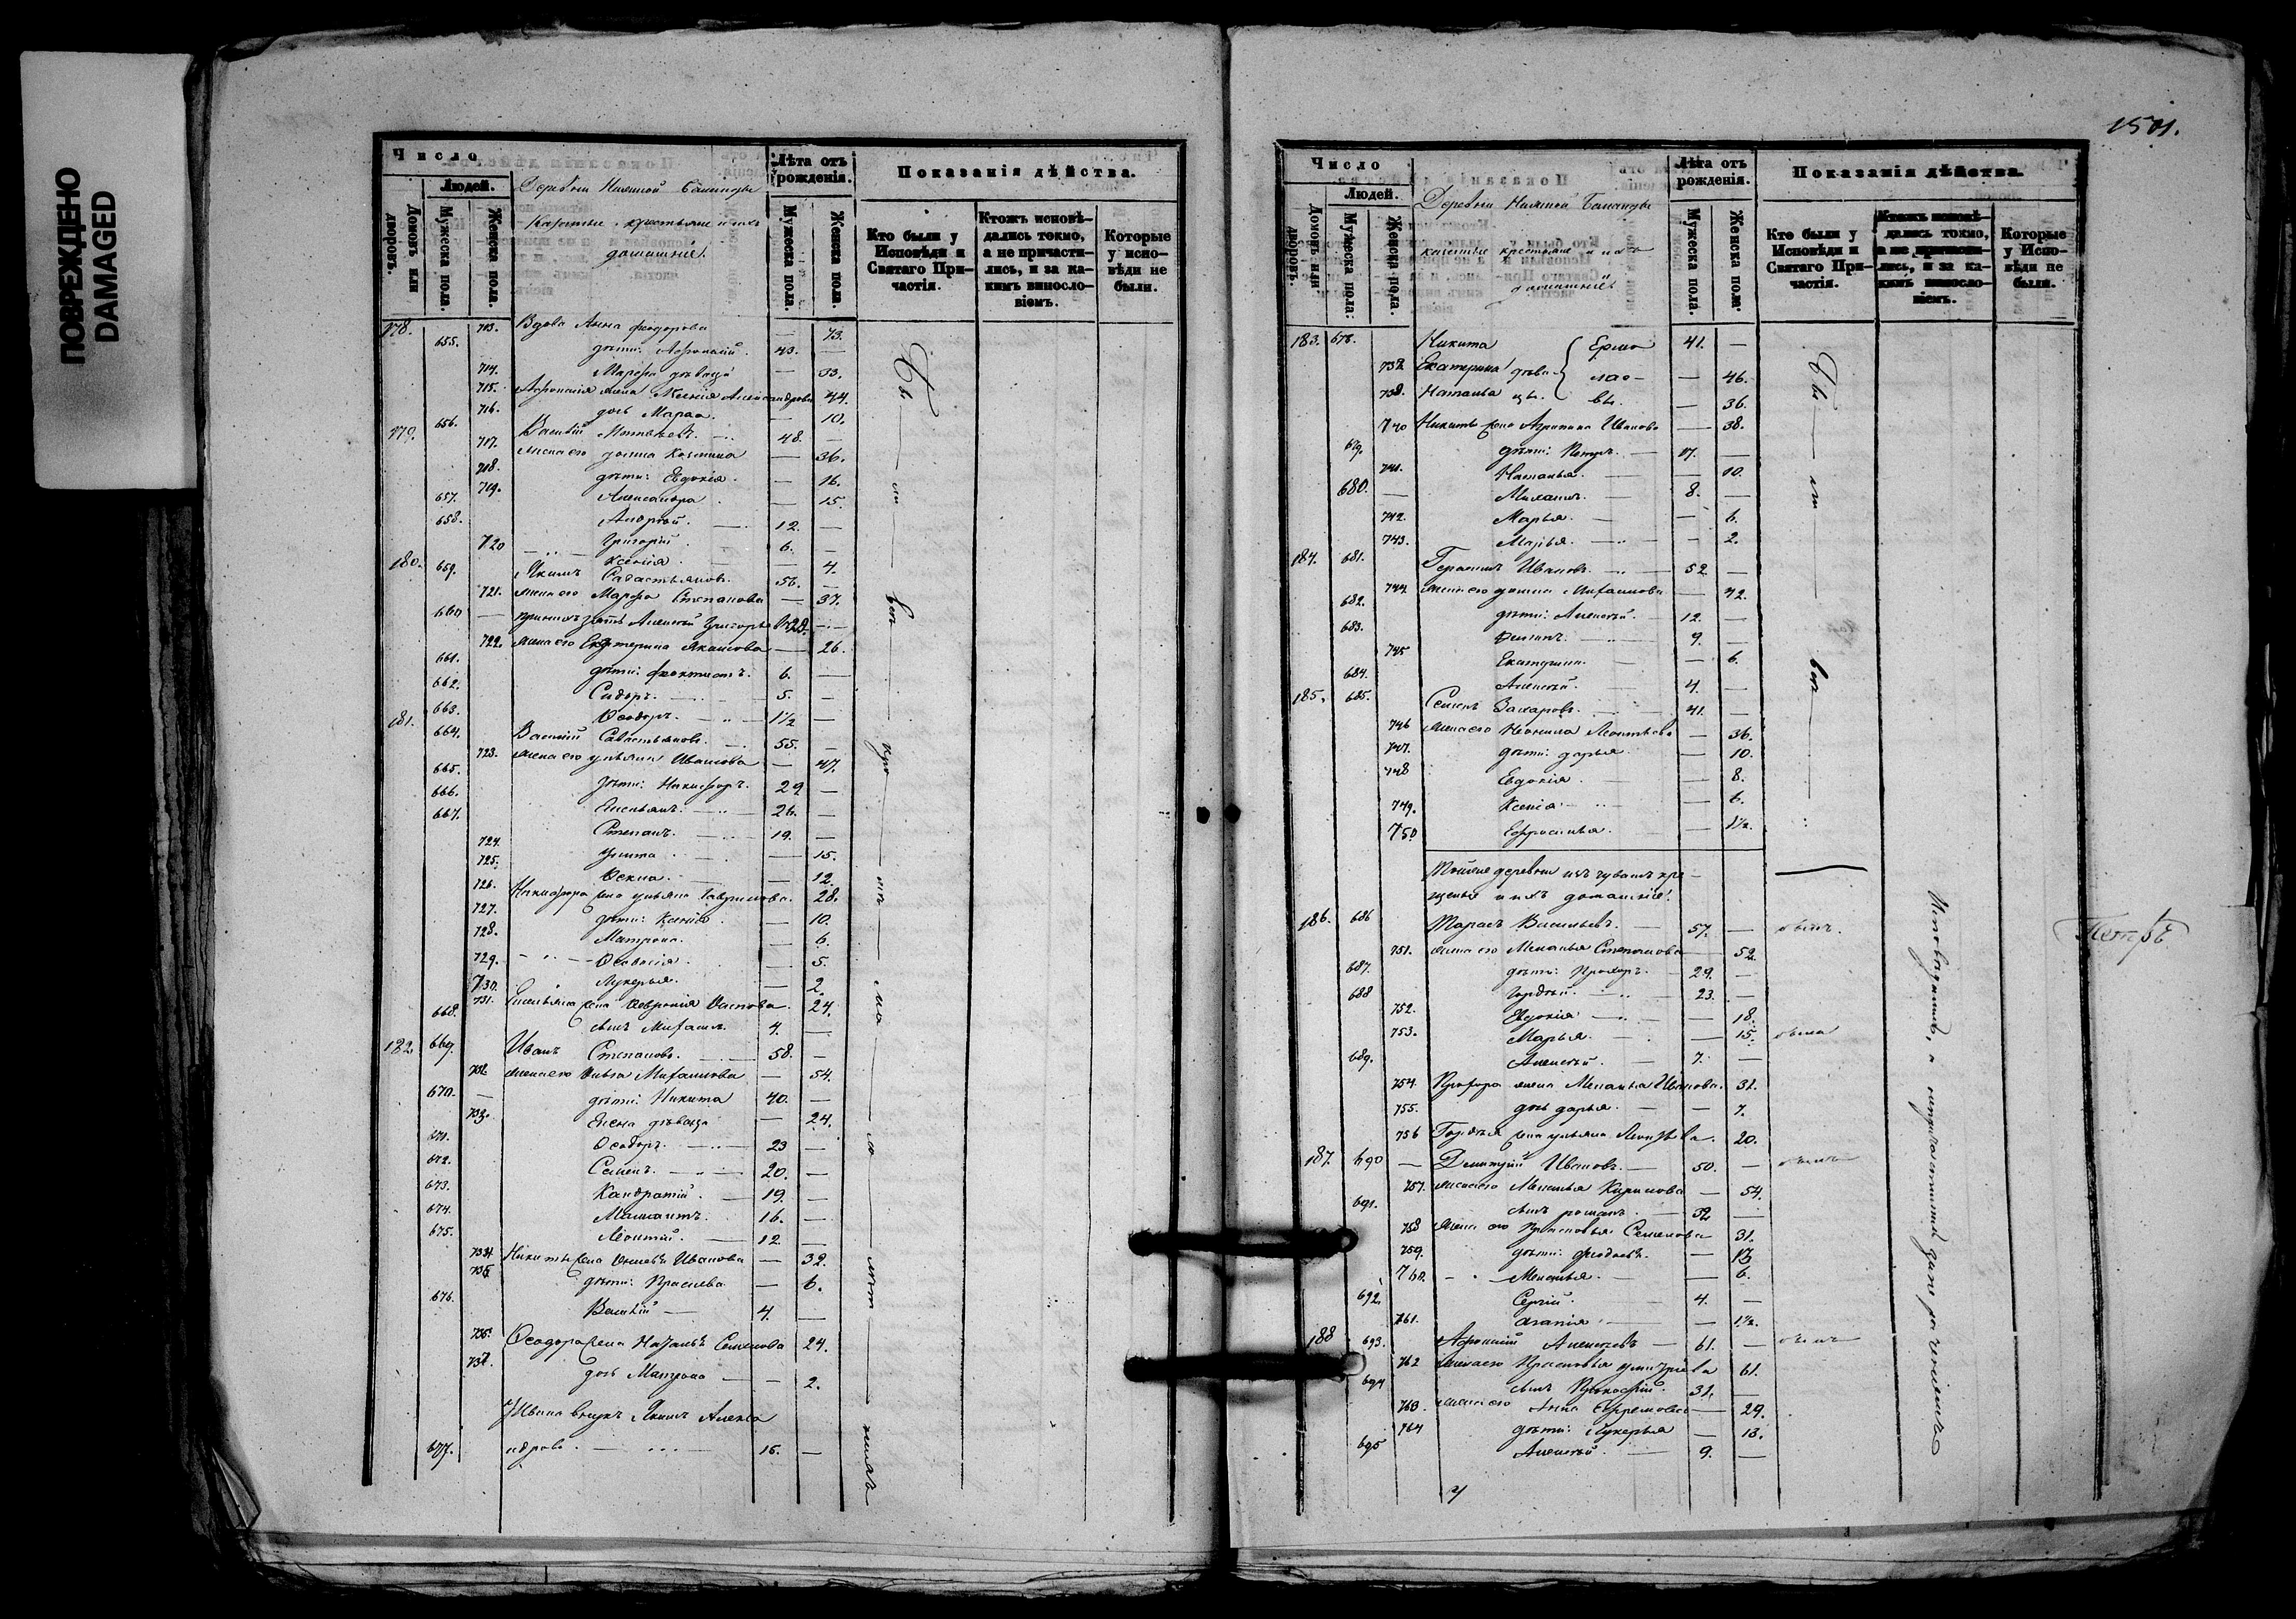 ПОВРЕЖДЕНО
DAMAGED
Число
Людей.
Домовъ или дворовъ.
Мужеска пола.
Женска пола.
Деревни Нижней
крестьяне и ихъ
домашніе.
Лѣта отъ рожденія.
Мужеска пола.
Женска пола.
Показанія дѣйства.
Кто были у Исповѣди и Святаго Причастія.
Ктожъ исповѣдались токмо, а не причастились, и за какимъ винословіемъ.
Которые у исповѣди не были.
178. 713. Вдова Анна Феодорова — 73.
655. дѣти: Афонасій. 43. —
714. Марфа дѣвица — 33.
715. Афонасія жена Ксенія Александрова 44.
716. дочь Марѳа. — 10.
179. 656. Василій Матвѣевъ. 48. —
717. жена его Домна Козмина — 36.
718. дѣти: Евдокія. — 16.
719. Александра — 15.
657. Андрей. 12. —
658. Григорій 6. —
720 Ксенія. — 4.
180. 659. Якимъ Савастьяновъ. 56. —
721. жена его Марфа Степанова — 37.
660 зять Алексѣй Григорьевъ 28. —
722. жена его Екатерина Якимова — 26.
661. дѣти: Феоктистъ. 6. —
662. Сидоръ. 5. —
663. Ѳеодоръ. 1½ —
181. 664. Василій Савастьяновъ. 55. —
723. жена его Ульяна Иванова — 47.
665. дѣти: Никифоръ. 29 —
666. Емельянъ. 26. —
667. Степанъ. 19. —
724. Улита — 15.
725. Ѳекла. — 12.
726. Никифора жена Ульяна Гаврилова. 28.
727. дѣти: Ксенія — 10.
728. Матрона. — 6.
729. — 5.
730. Лукерья. — 2.
731. Емельяна жена Осипова. 24.
668. сынъ Михаилъ 4. —
182. 669. Иванъ Степановъ. 58. —
732. жена его Михайлова — 54.
670. дѣти: Никита 40. —
733. Елена дѣвица — 24.
671. Ѳеодоръ. 23 —
672. Семенъ. 20. —
673. Кандратій. 19. —
674. 16. —
675. Леонтій. 12. —
734. Никиты жена Иванова — 32.
735 дѣти: — 6.
676. Василій 4. —
736. Ѳеодора жена Наталья Семенова 24.
737. дочь Матрона — 2.
Ивана внукъ Якимъ Алекса
677. ндровъ. 16. —
1501.
Число
Людей.
Домовъ или дворовъ.
Мужеска пола:
Женска пола.
Деревни Нижней
крестьяне и ихъ
домашніе
Лѣта отъ рожденія.
Мужеска пола.
Женска пола.
Показанія дѣйства.
Кто были у Исповѣди и Святаго Причастія.
Ктожъ исповѣдались токмо, а не причастились, и за какимъ винословіемъ.
Которые у Исповѣди не были.
183. 678. Никита Ермо 41. —
738. Екатерина дѣви- лае- — 46.
739. Наталья цы. вы. — 36.
740 Никиты жена Агрипина Иванова — 38.
679. дѣти: Петръ. 17. —
741. Наталья. — 10.
680. Михаилъ. 8. —
742. Марья. — 6.
743. Марья. — 2.
184. 681. Герасимъ Ивановъ. 52 —
744 жена его Домна Михайлова — 42.
682. дѣти: Алексѣй. 12. —
683. 9. —
745 Екатерина. — 6.
684. Алексѣй. 4. —
185. 685. Семенъ Захаровъ. 41. —
746 жена его Неонила Леонтьева — 36.
747. дѣти: Дарья. — 10.
748 Евдокія. — 8.
749. Ксенія. — 6.
750 Ефросинья. — 1½.
Тойже деревни изъ чувашъ кре-
щеные и ихъ домашніе.
186. 686 Тарасъ Васильевъ. 57. — былъ.
751. жена его Меланья Степанова — 52.
687. дѣти: Прохоръ. 29. —
688 Гордѣй. 23. —
752. Евдокія — 18.
753. Марья. — 15. была
689. Алексѣй. 7. —
754. Прохора жена Меланья Иванова. 31.
755. дочь Дарья. — 7.
756 Гордѣя жена Ульяна 20.
187. 690 Димитрій Ивановъ. 50. —
757. жена его Меланья Кирилова — 54.
691. сынъ Романъ. 32 —
758 жена его Прасковья Семенова 31.
759. дѣти: — 13
760. Меланья. — 6.
692. Сергій. 4. —
761. Агапія. — 1½.
188 693. Афонасій Алексѣевъ 61. —
762 жена его Прасковья Дмитріева 61.
694 сынъ Прокофій. 31. —
763. жена его Анна Ефремова — 29.
764 дѣти: Лукерья — 13.
695 Алексѣй. 9. —
Петръ